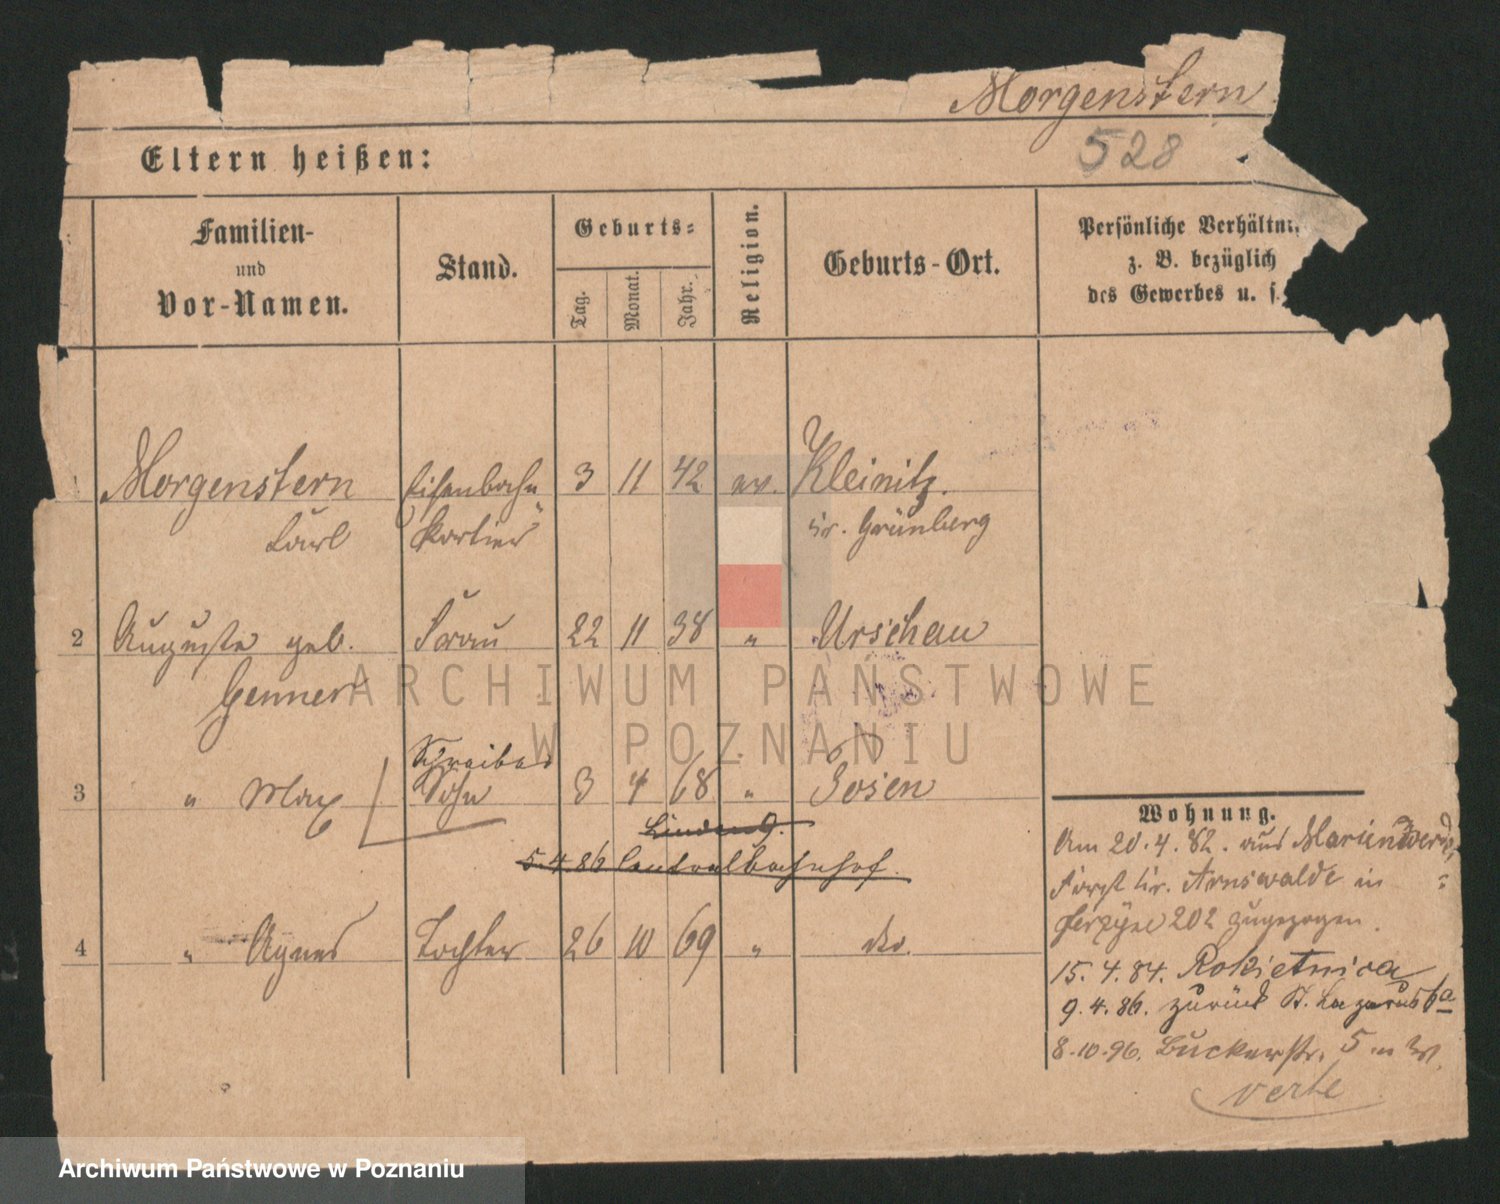 Morgenstern
528
Eltern heißen:
Familien-
und
Vor-Namen.
Stand.
Geburts-
Tag.
Monat.
Jahr.
Religion.
Geburts-Ort.
Persönliche Verhältni
z. B. bezüglich
des Gewerbes u. s.
1 Morgenstern Eisenbahn 3 11 42 ev. Kleinitz.
Carl Portier Kr. Grünberg
2 Auguste geb. Frau 22 11 38 " Urschau
Genner
Schreiber
3 " Max Sohn 3 4 68 " Posen
Linden 9.
5.4.86 Centralbahnhof.
4 " Agnes Tochter 26 10 69 " do.
Wohnung.
Am 20.4.82. aus Marienwerd
Forst Kr. Arnswalde in
Jerzyce 202 zugezogen.
15.4.84. Rokietnica
9.4.86. zurück St. Lazarus 6a
8.10.96. Buckerstr. 5
verte
ARCHIWUM PAŃSTWOWE
W POZNANIU
Archiwum Państwowe w Poznaniu